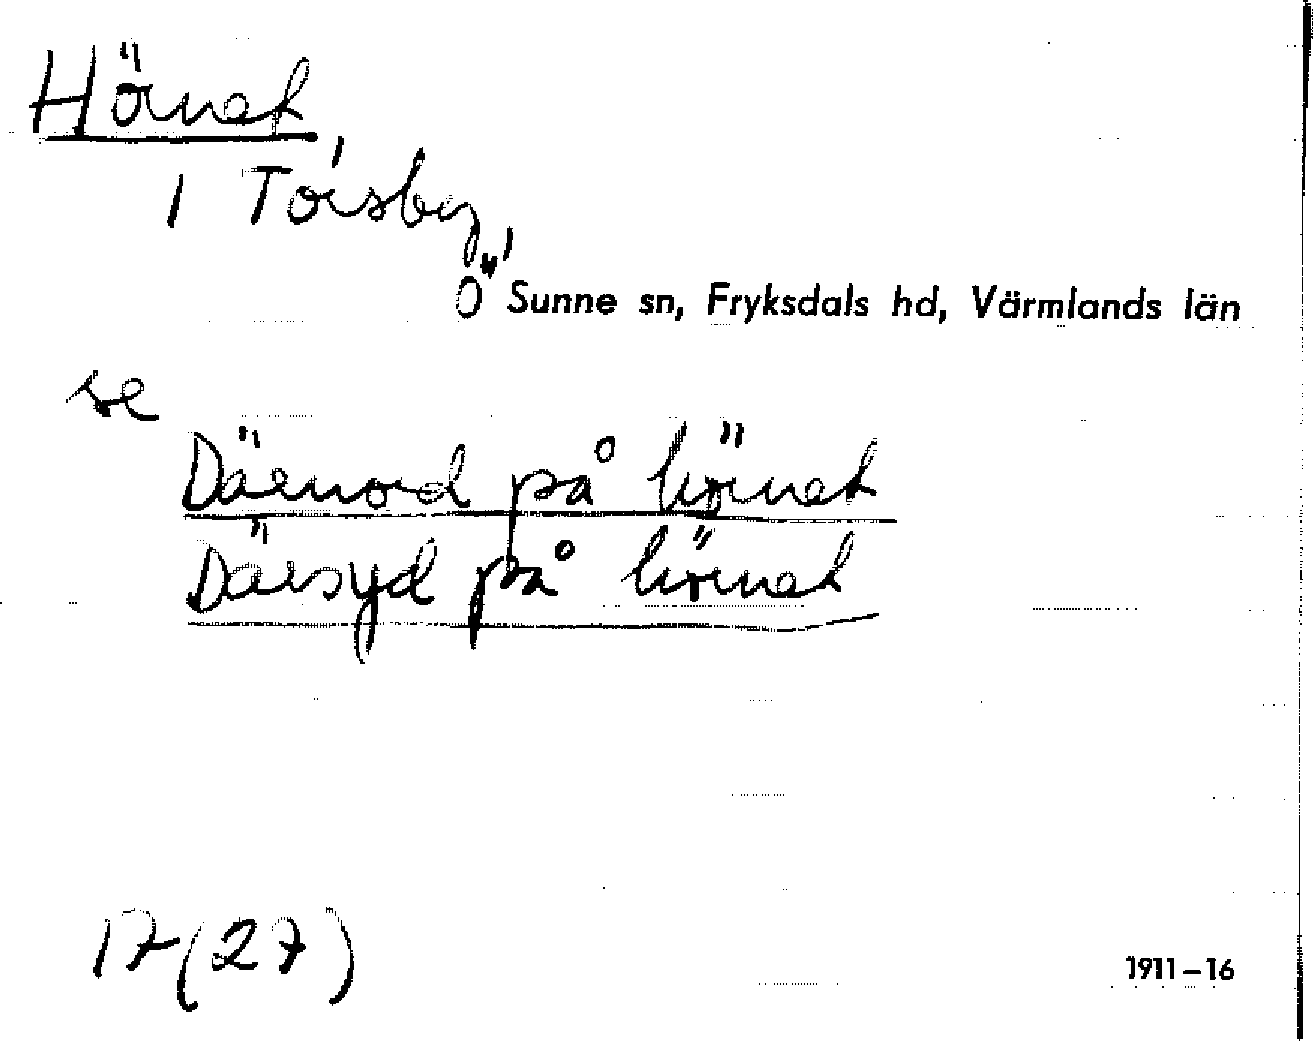 Hörnet
1 Torsby,
Ö Sunne sn, Fryksdals hd, Värmlands län
se
Därnord på hörnet
Därsyd på hörnet
17(27)
1911–16